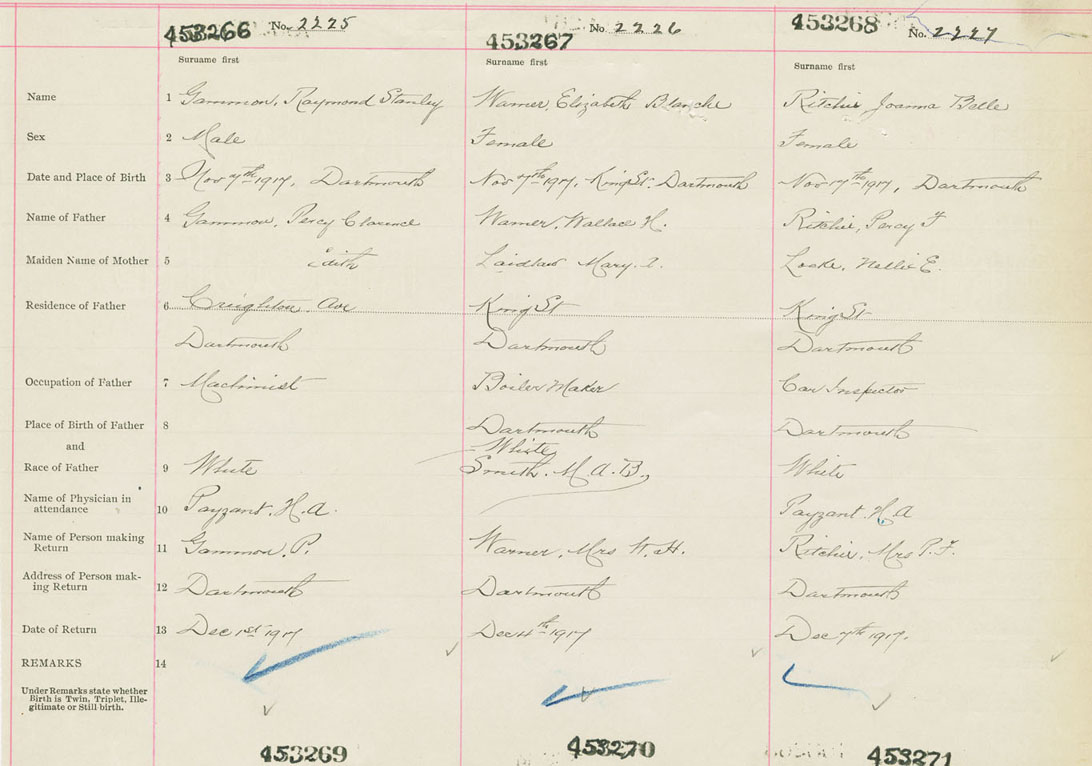 453266 No. 2225 453267 No. 2226 453268 No. 2227
Surname first Surname first Surname first
Name 1 Gammon, Raymond Stanley Warner, Elizabeth Blanche Ritchie, Joanna Belle
Sex 2 Male Female Female
Date and Place of Birth 3 Nov 7th 1917, Dartmouth Nov 7th 1917, King St. Dartmouth Nov 17th 1917, Dartmouth
Name of Father 4 Gammon, Percy Clarence Warner, Wallace H. Ritchie, Percy F
Maiden Name of Mother 5 Edith Laidlaw Mary. Locke, Nellie E.
Residence of Father 6 Creighton Ave King St King St
Dartmouth Dartmouth Dartmouth
Occupation of Father 7 Machinist Boiler Maker Car Inspector
Place of Birth of Father 8 Dartmouth Dartmouth
and White
Race of Father 9 White Smith. M. A. B., White
Name of Physician in
attendance 10 Payzant. H. A. Payzant. H. A
Name of Person making
Return 11 Gammon, P. Warner, Mrs W. H. Ritchie, Mrs P. F.
Address of Person mak-
ing Return 12 Dartmouth Dartmouth Dartmouth
Date of Return 13 Dec 1st 1917 Dec 4th 1917 Dec 7th 1917.
REMARKS 14
Under Remarks state whether
Birth is Twin, Triplet, Ille-
gitimate or Still birth.
453269 453270 453271